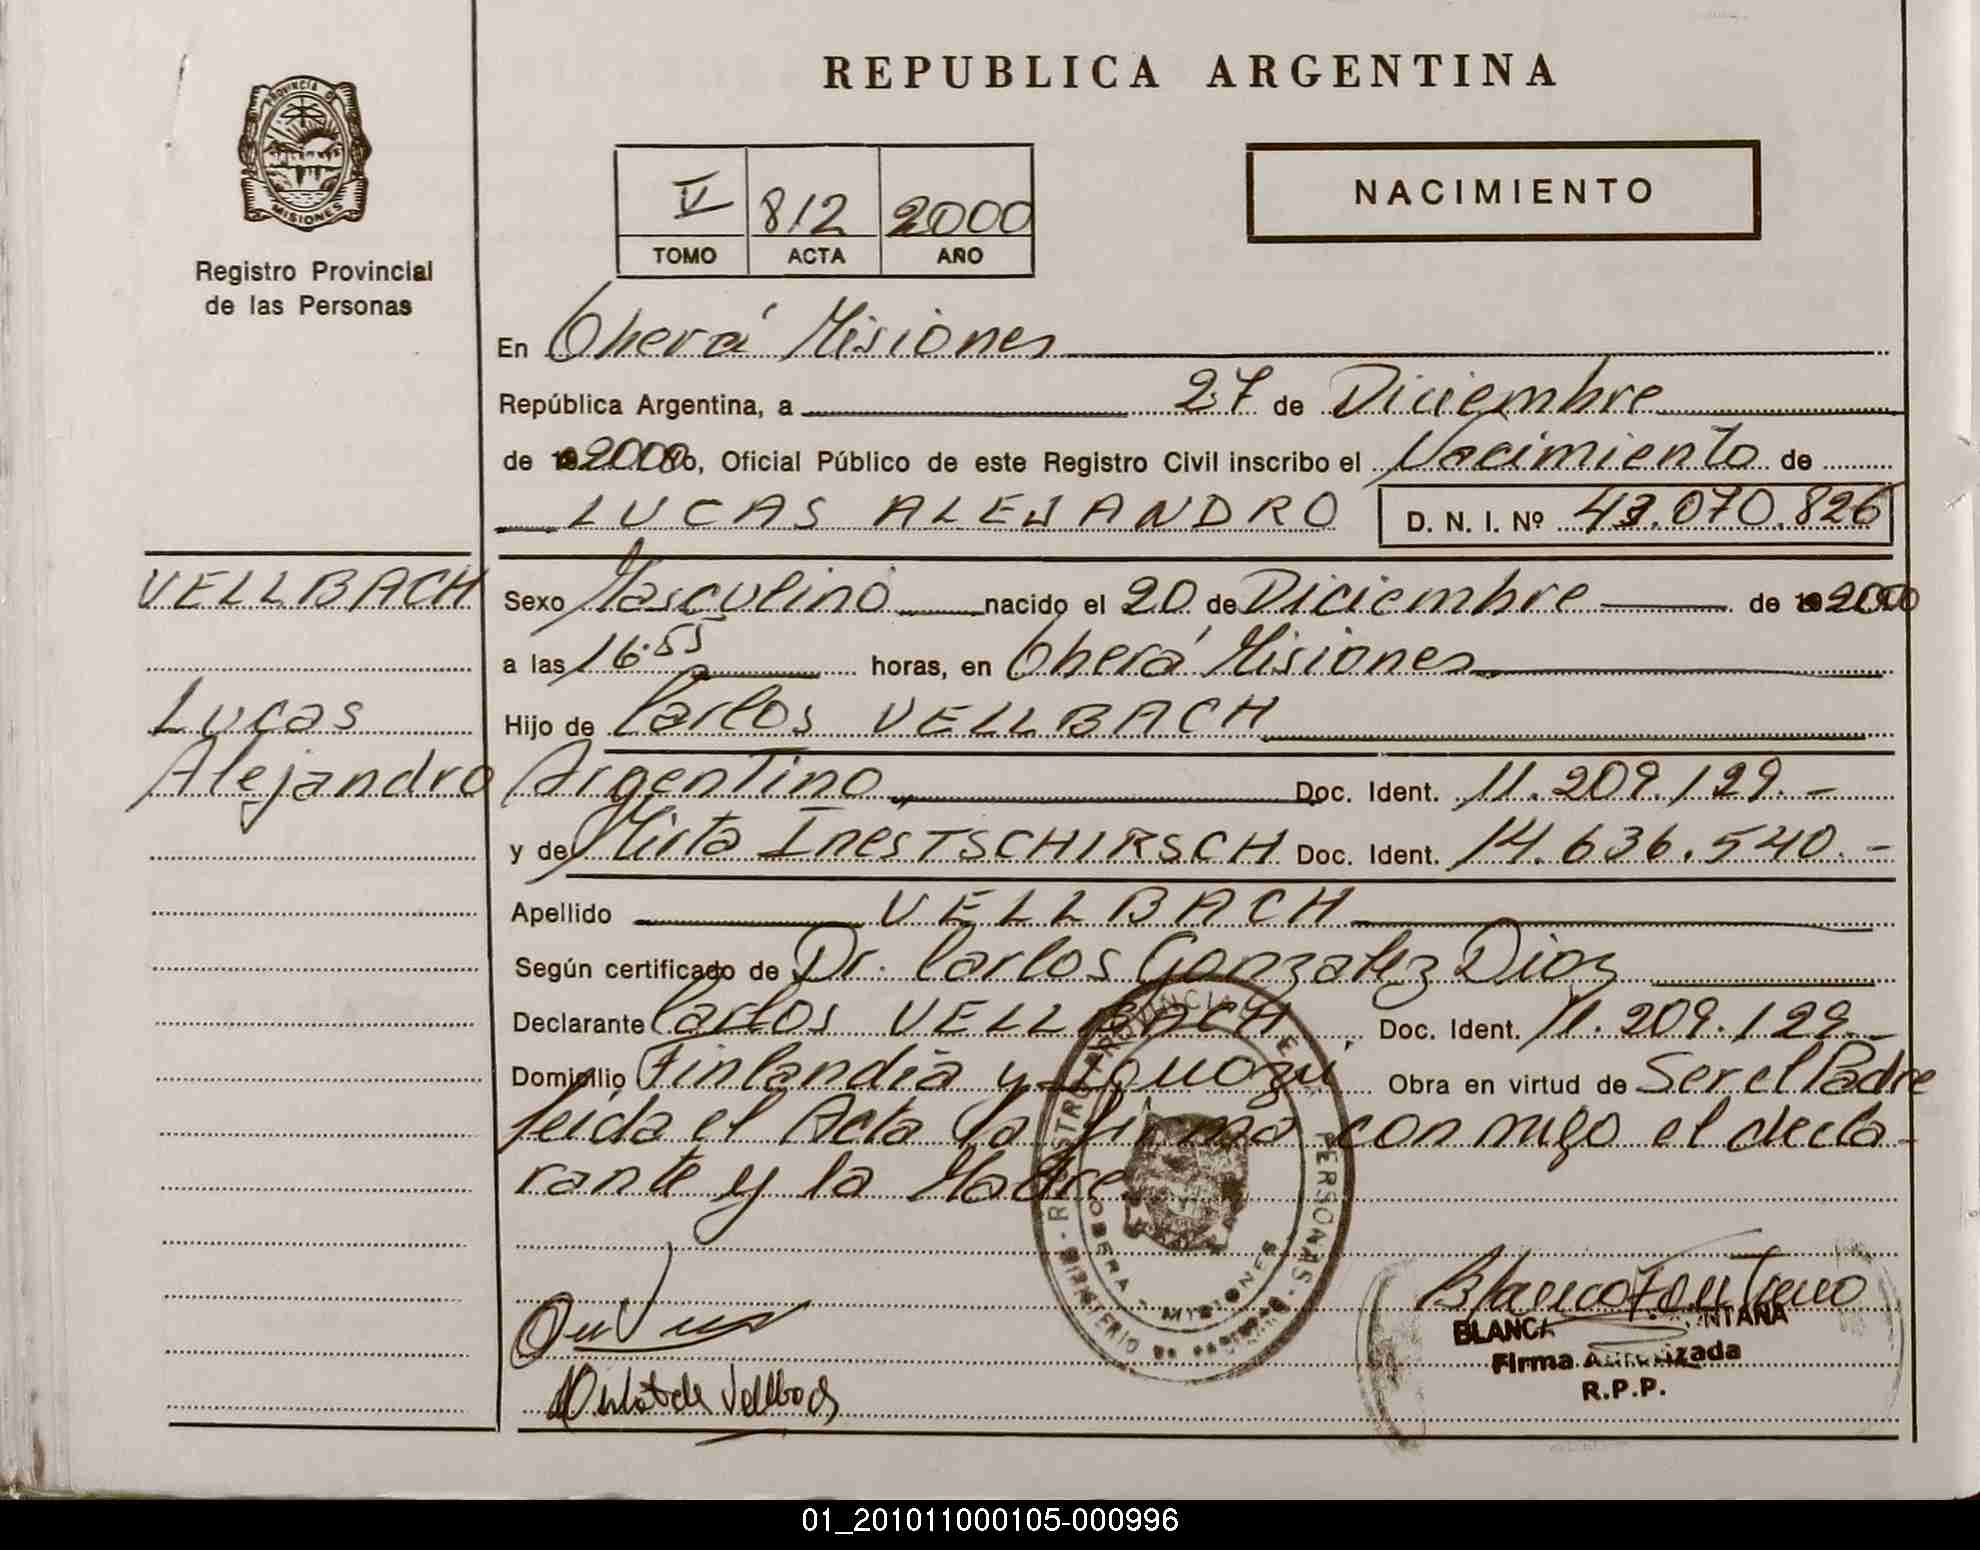 REPUBLICA ARGENTINA
PROVINCIA DE
MISIONES
Registro Provincial
de las Personas
V 812 2000
TOMO ACTA AÑO
NACIMIENTO
En Oberá Misiones
República Argentina, a 27 de Diciembre
de 2000, Oficial Público de este Registro Civil inscribo el Nacimiento de
LUCAS ALEJANDRO D. N. I. Nº 43.070.826
VELLBACH
Lucas
Alejandro
Sexo Masculino nacido el 20 de Diciembre de 2000
a las 16.55 horas, en Oberá Misiones
Hijo de Carlos VELLBACH
Argentino Doc. Ident. 11.209.129.-
y de Mirta Inés TSCHIRSCH Doc. Ident. 14.636.540.-
Apellido VELLBACH
Según certificado de Dr. Carlos Gonzalez Dios
Declarante Carlos VELLBACH Doc. Ident. 11.209.129.-
Domicilio Finlandia y Iguazú Obra en virtud de Ser el Padre
leída el Acta la firma con migo el decla-
rante y la Madre
PERSONAS
OBERA - MISIONES
BLANCA
Firma Autorizada
R.P.P.
01_201011000105-000996